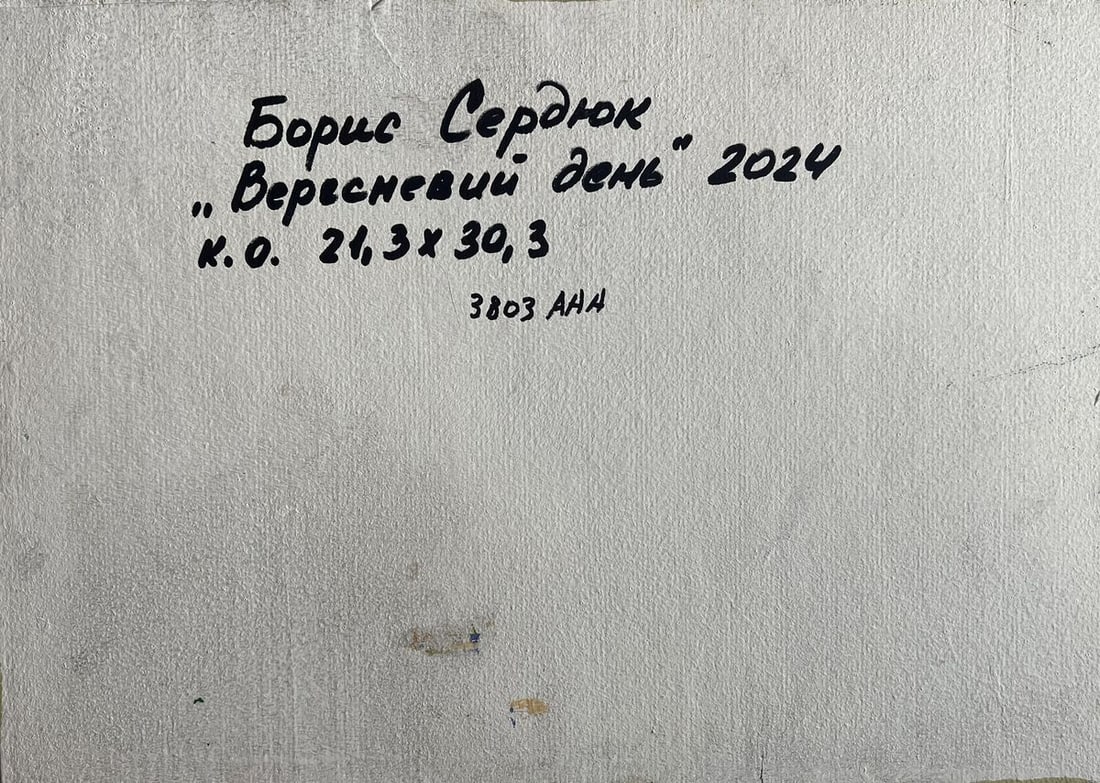 Борис Сердюк
„Вересневий день" 2024
к.о. 21,3 х 30,3
3803 АНН